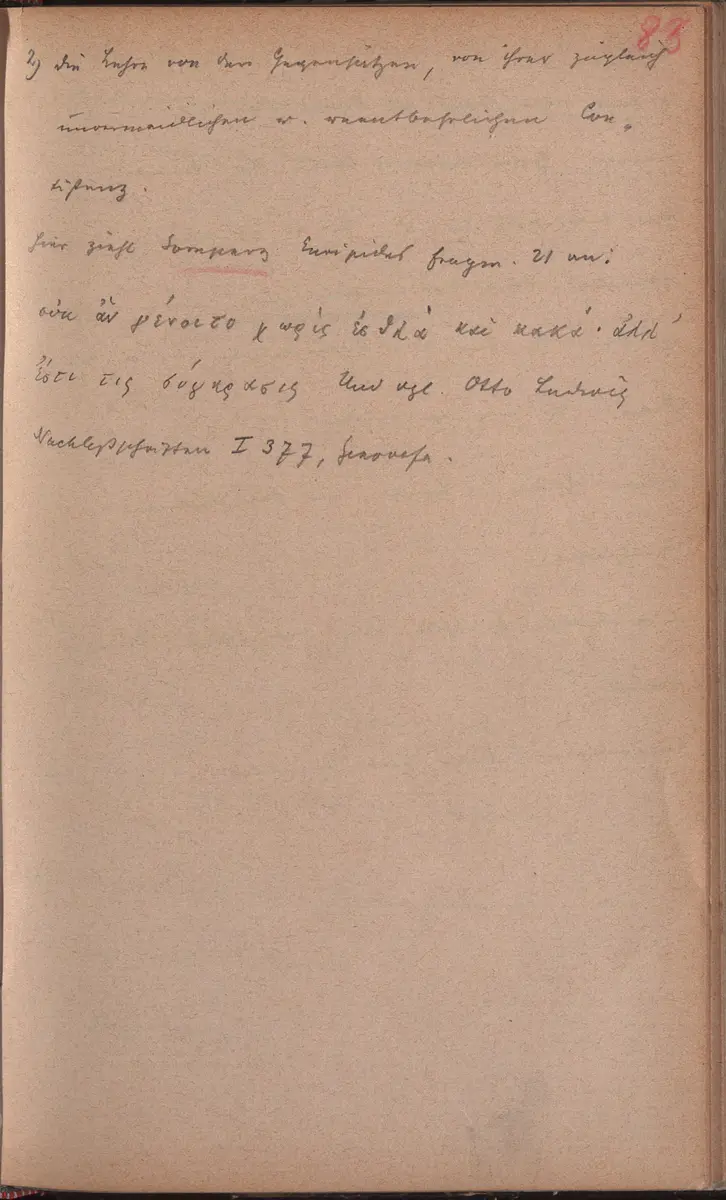 83
2) die Lehre von den Gegensätzen, von ihrer zugleich
unvermeidlichen u. unentbehrlichen Coe-
xistenz.
Hier zieht Gomperz Euripides fragm. 21 an:
οὐκ ἂν γένοιτο χωρὶς ἐσθλὰ καὶ κακά· ἀλλ'
ἔστι τις σύγκρασις Und vgl. Otto Ludwig
Nachlaßschriften I 377, Genovefa.